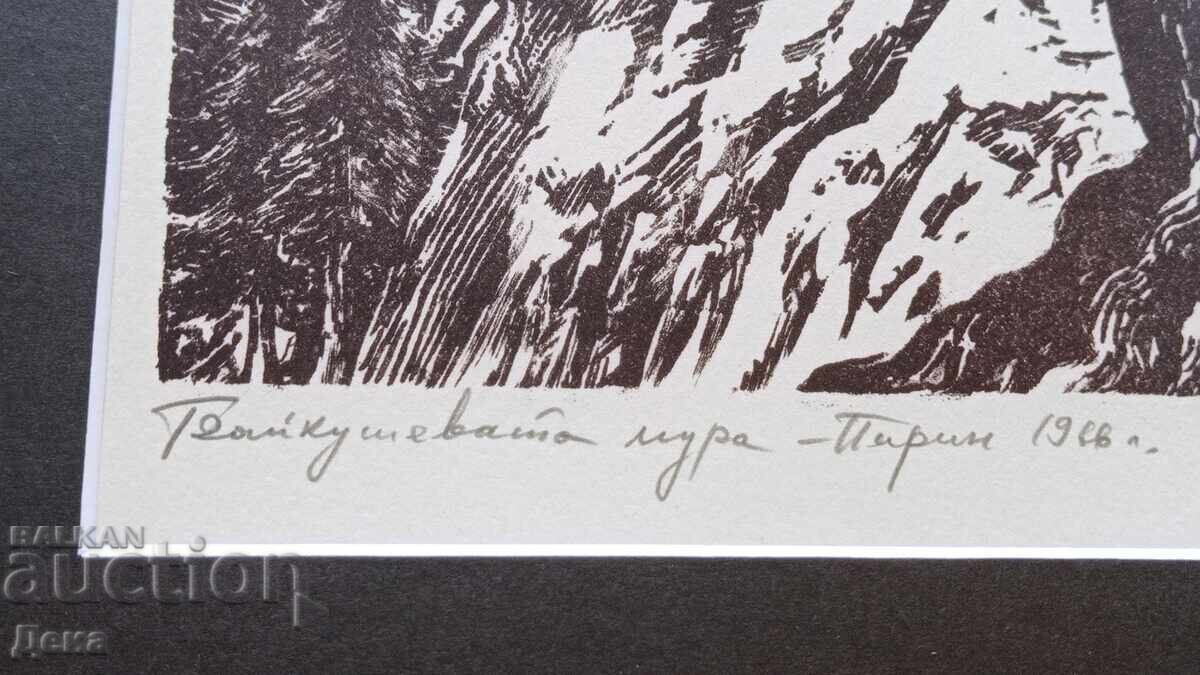 Байкушевата мура – Пирин 1966 г.
BALKAN
auction
Дека